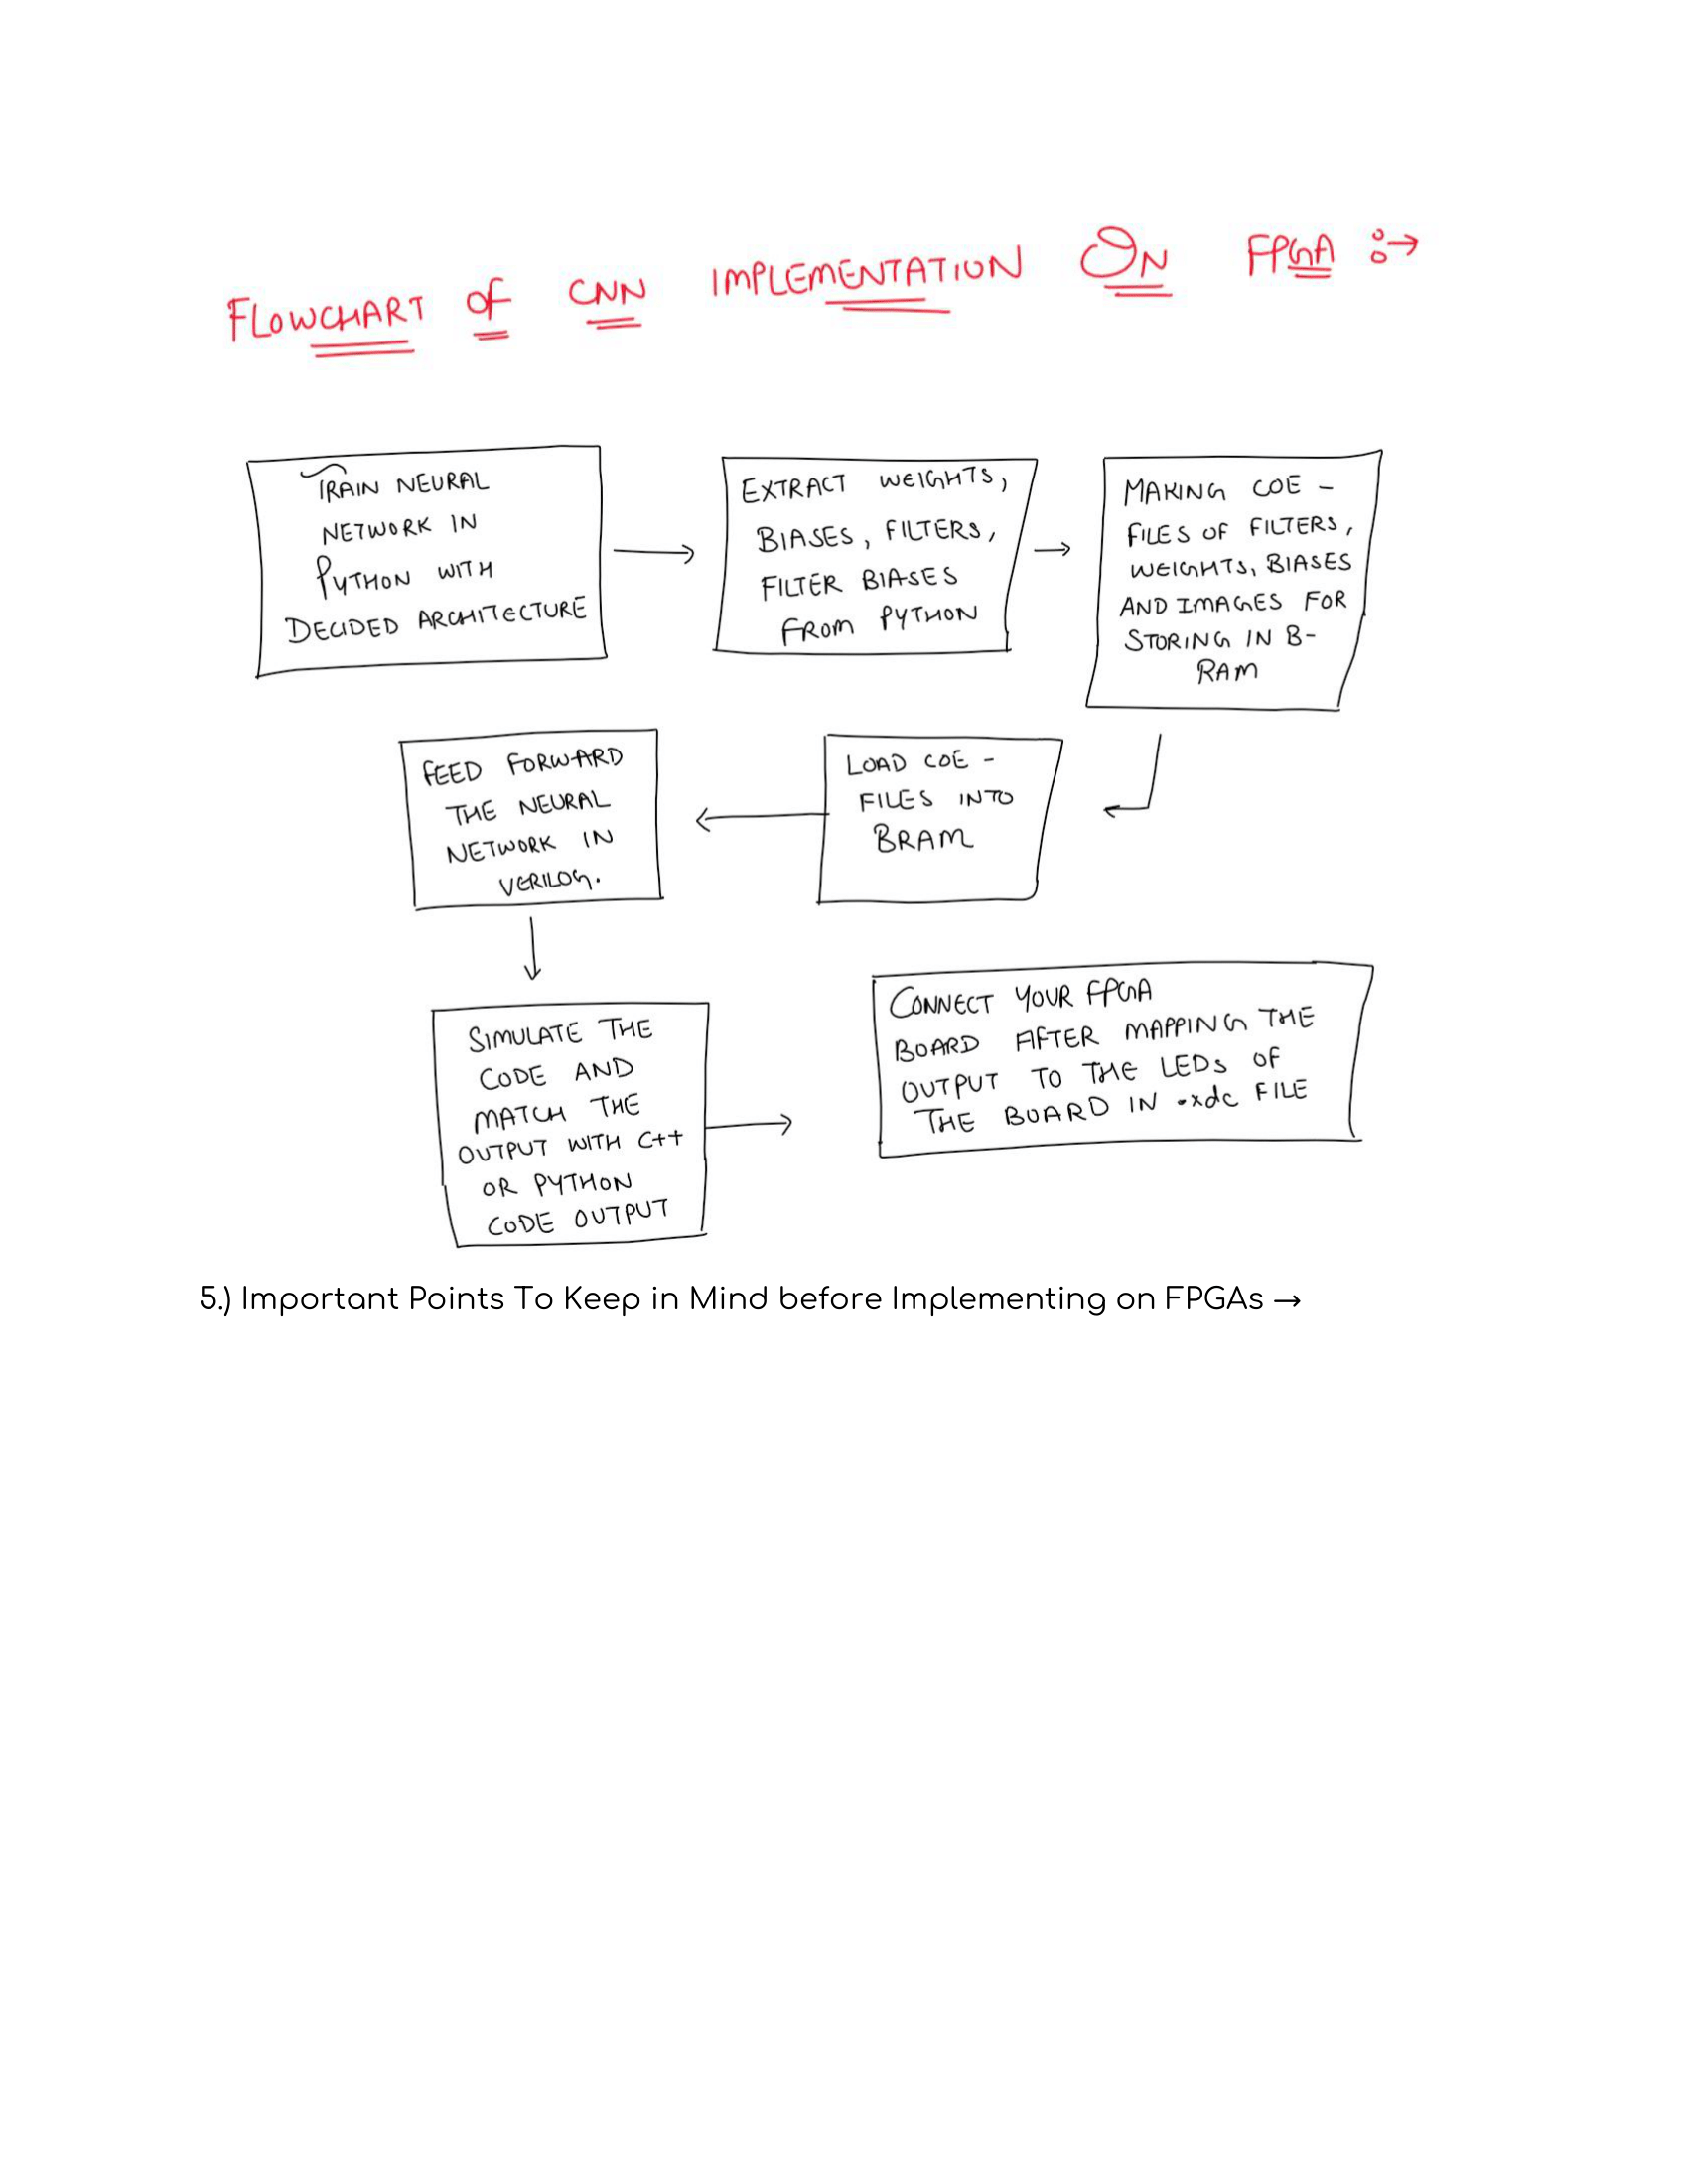 FLOWCHART OF CNN IMPLEMENTATION ON FPGA :→
TRAIN NEURAL
NETWORK IN
PYTHON WITH
DECIDED ARCHITECTURE
EXTRACT WEIGHTS,
BIASES, FILTERS,
FILTER BIASES
FROM PYTHON
MAKING COE -
FILES OF FILTERS,
WEIGHTS, BIASES
AND IMAGES FOR
STORING IN B-
RAM
LOAD COE -
FILES INTO
BRAM
FEED FORWARD
THE NEURAL
NETWORK IN
VERILOG.
SIMULATE THE
CODE AND
MATCH THE
OUTPUT WITH C++
OR PYTHON
CODE OUTPUT
CONNECT YOUR FPGA
BOARD AFTER MAPPING THE
OUTPUT TO THE LEDs OF
THE BOARD IN .xdc FILE
5.) Important Points To Keep in Mind before Implementing on FPGAs →